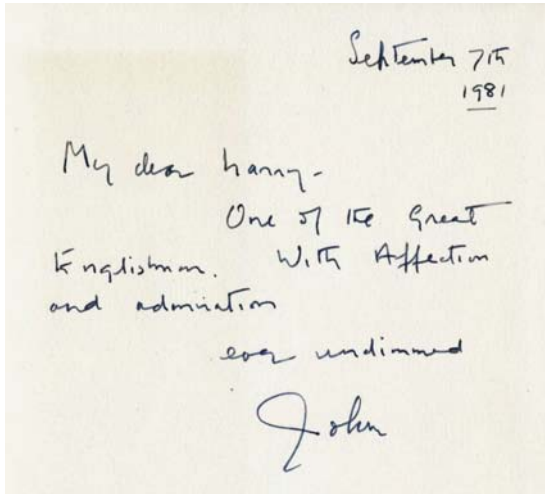 September 7th
1981
My dear Larry -
One of the Great
Englishmen. With Affection
and admiration
ever undimmed
John